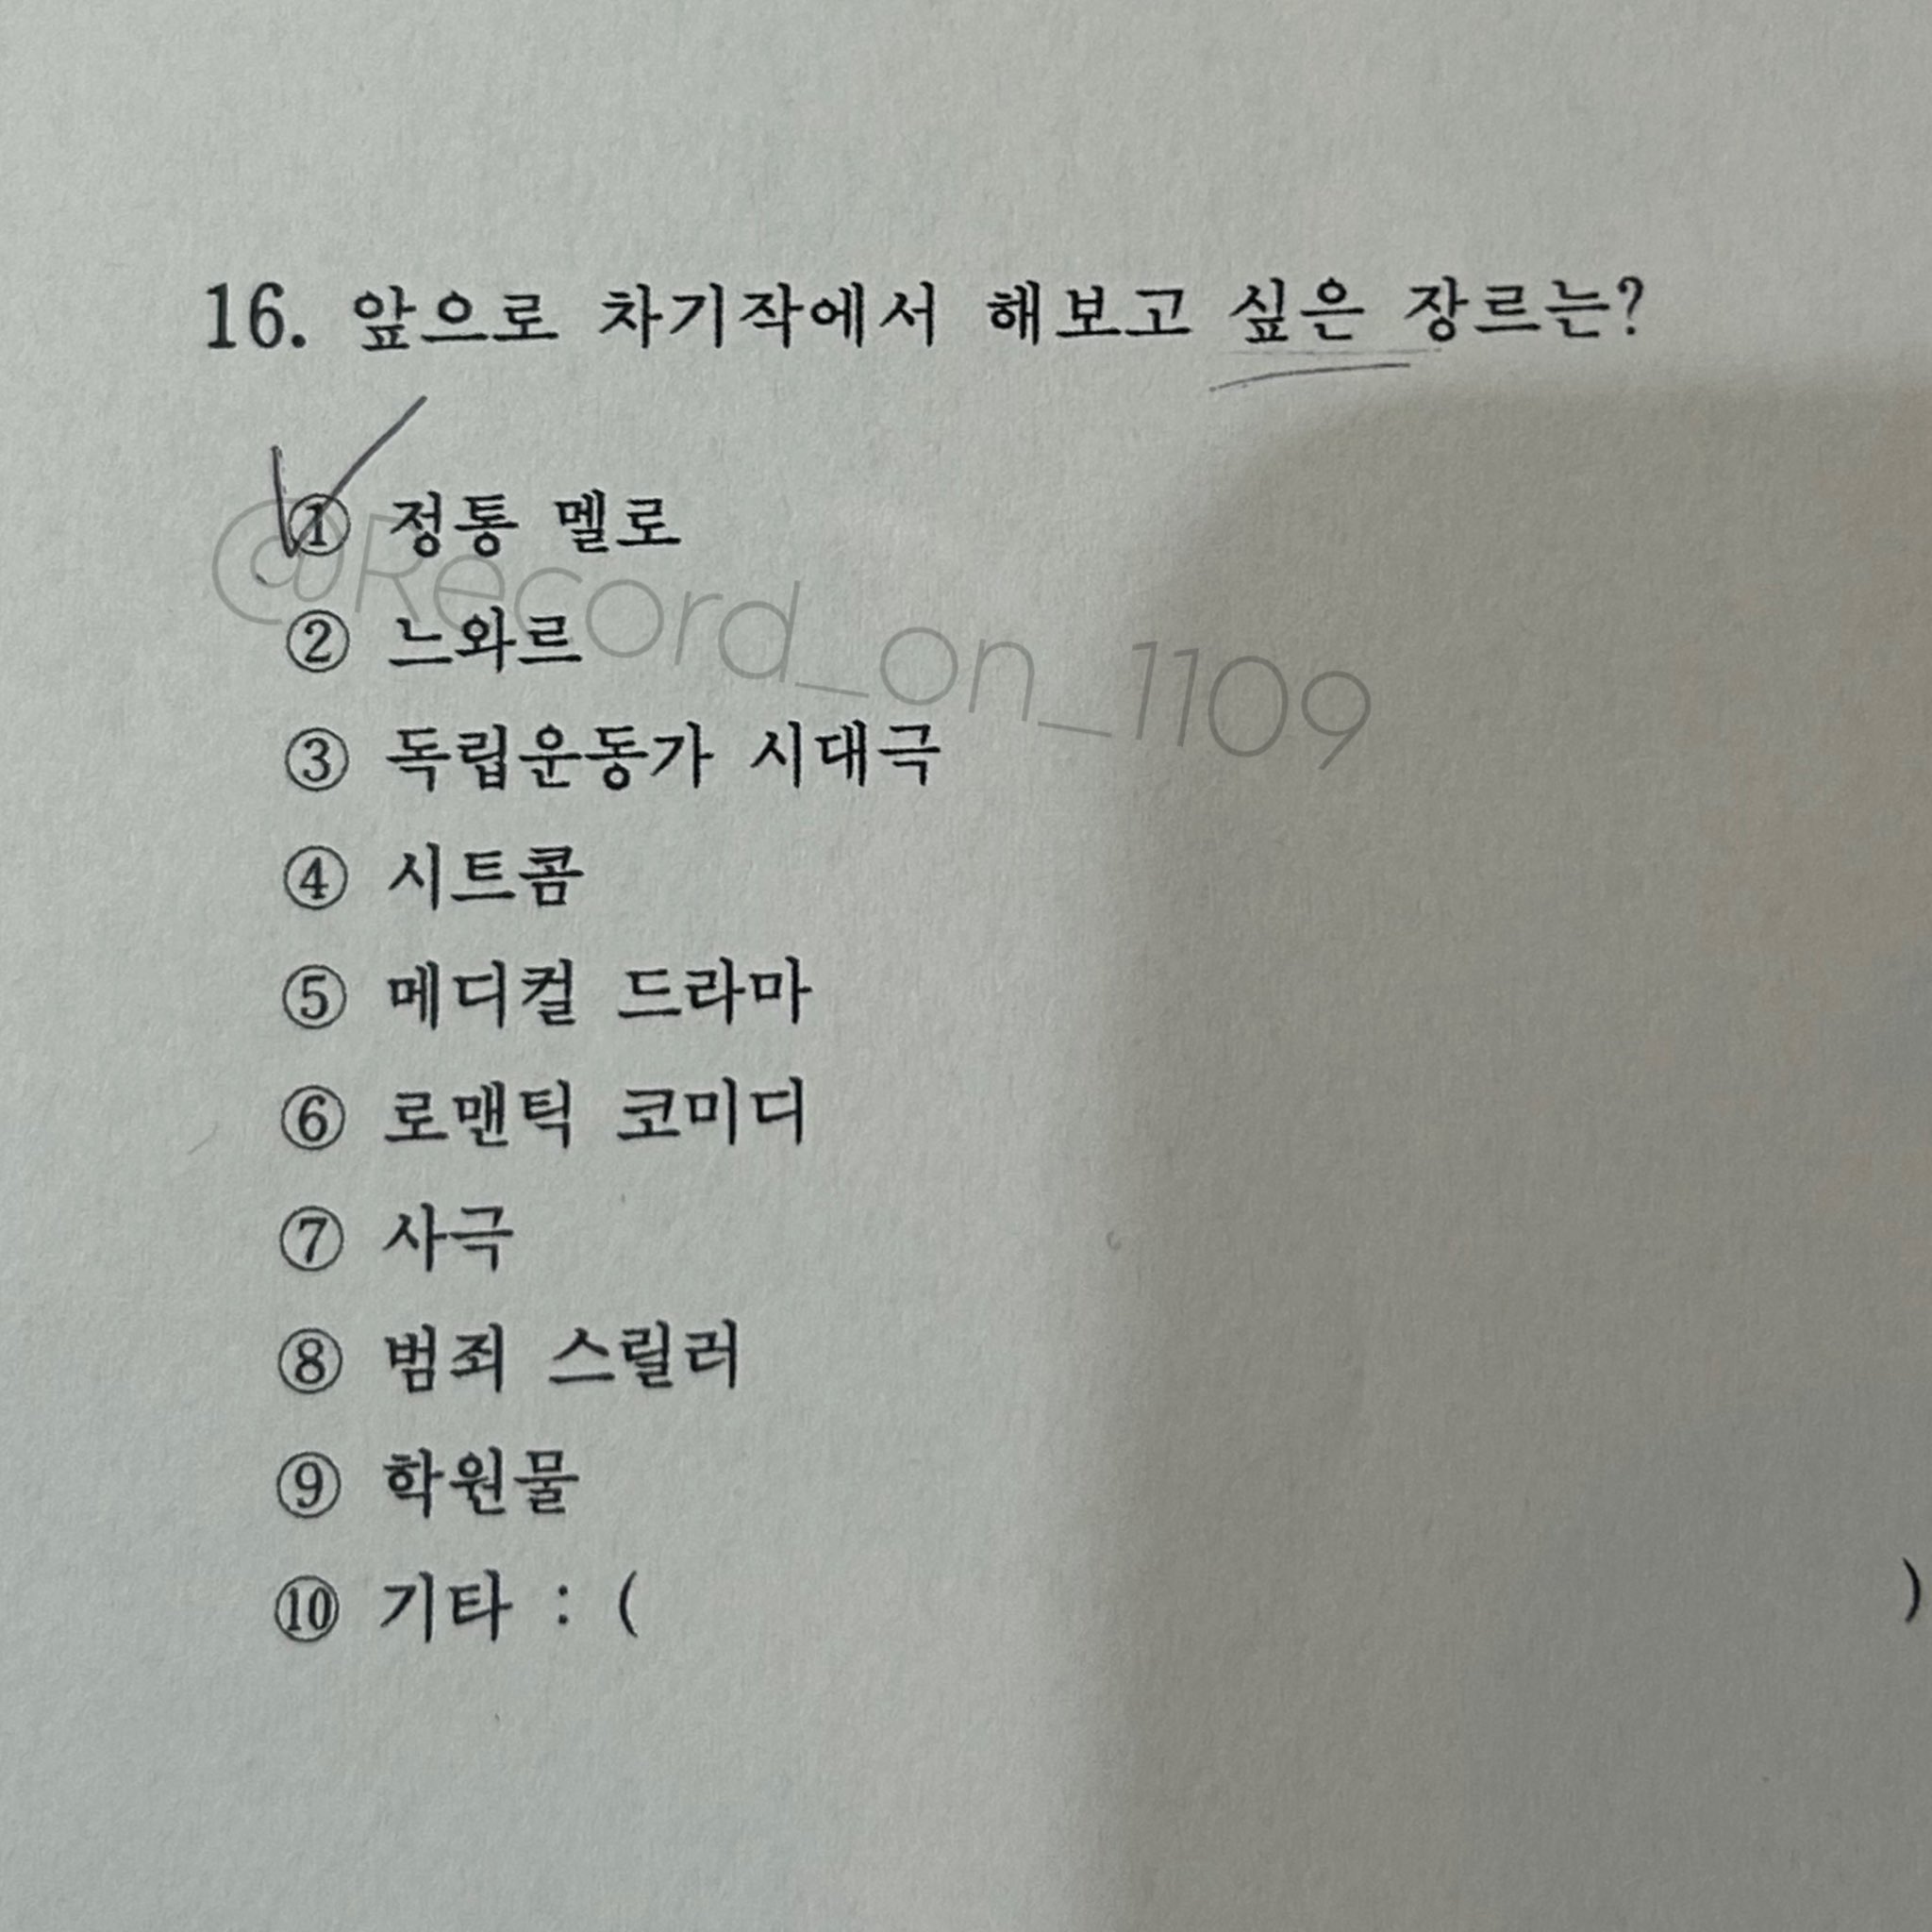 16. 앞으로 차기작에서 해보고 싶은 장르는?
① 정통 멜로
@Record_on_1109
② 느와르
③ 독립운동가 시대극
④ 시트콤
⑤ 메디컬 드라마
⑥ 로맨틱 코미디
⑦ 사극
⑧ 범죄 스릴러
⑨ 학원물
⑩ 기타 : ( )